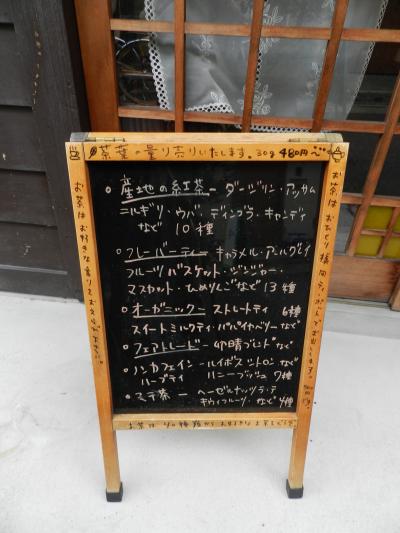 茶葉の量り売りいたします。30g 480円〜
産地の紅茶ーダージリン・アッサム
ニルギリ・ウバ・ディンブラ・キャンディ
など 10種
フレーバーティーー キャラメル・アールグレイ
フルーツバスケット・ジンジャー・
マスカット・ひめりんごなど 13種
オーガニックー ストレートティ 6種
スイートミルクティ・パパイヤベリーなど
フェアトレードー 卯晴ブレンドなど
ノンカフェインー ルイボスシトロンなど
ハーブティ ハニーブッシュ 7種
ステ茶ー ヘーゼルナッツラテ
キウィフルーツ・など 4種
お茶は40種類からお好きな
お茶はお好きな香りをお
お茶はおひとり様